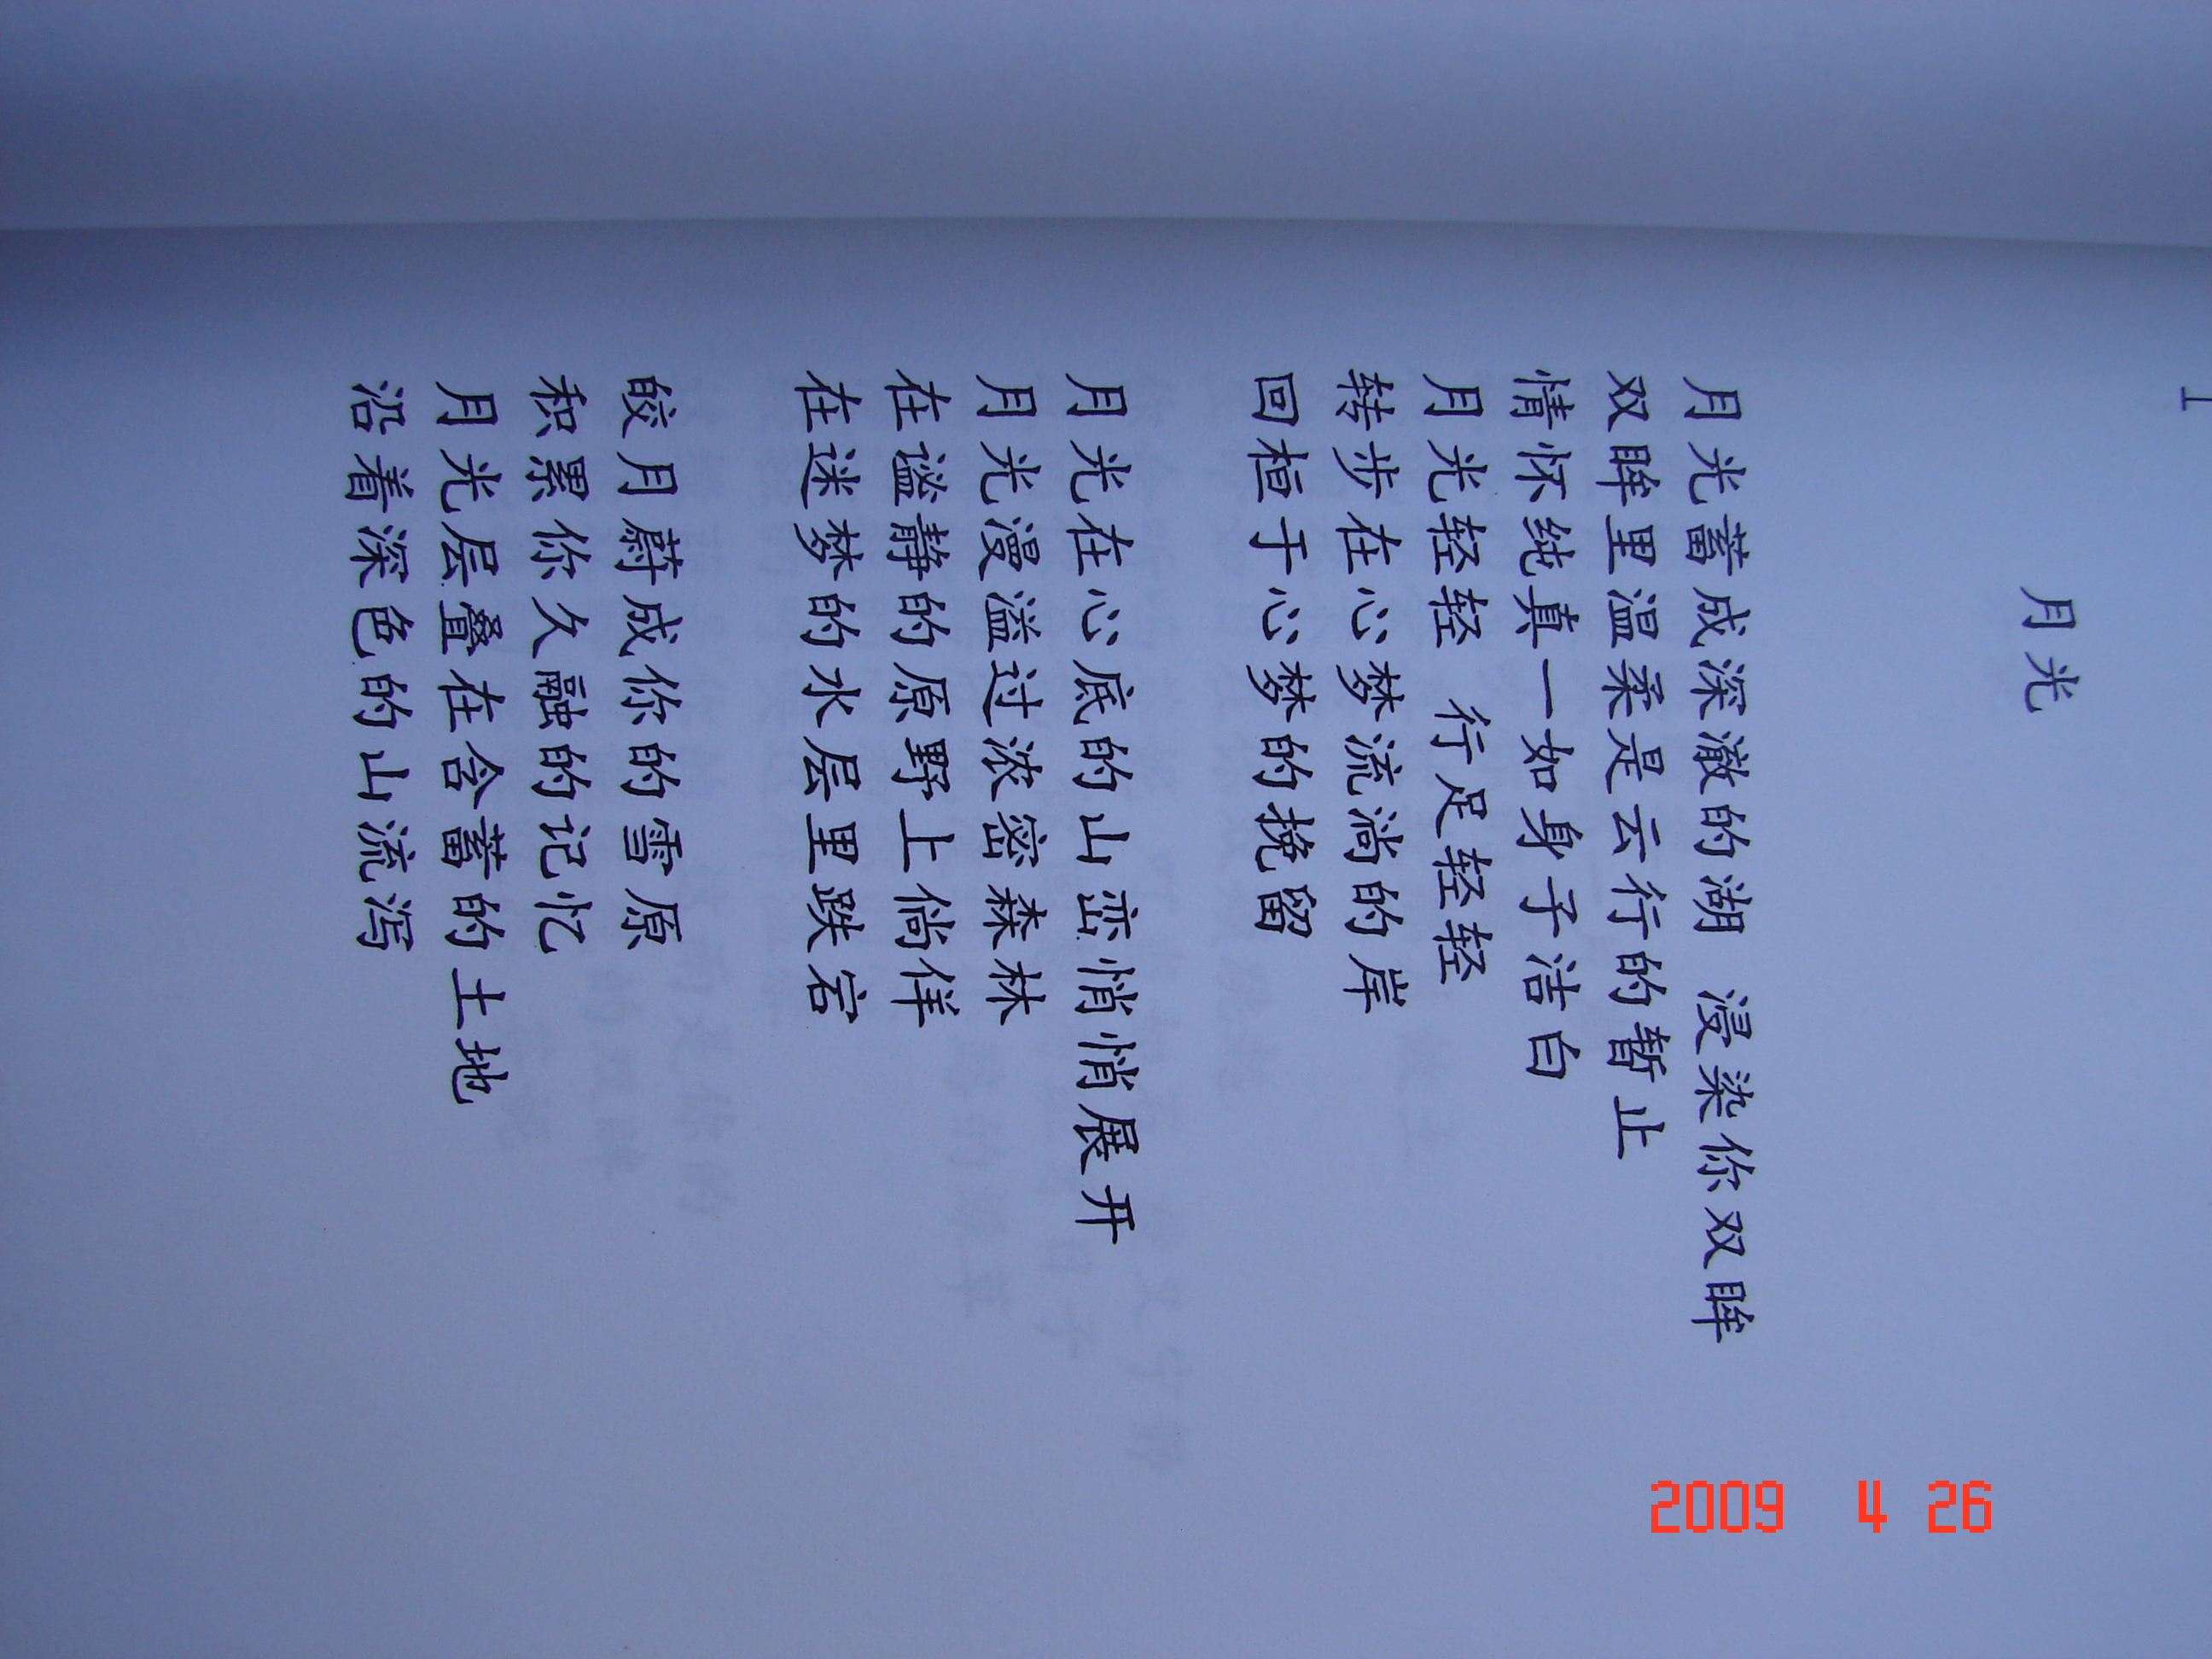 月光
月光蓄成深澈的湖 浸染你双眸
双眸里温柔是云行的暂止
情怀纯真一如身子洁白
月光轻轻 行足轻轻
转步在心梦流淌的岸
回桓于心梦的挽留
月光在心底的山峦悄悄展开
月光漫溢过浓密森林
在谧静的原野上倘佯
在迷梦的水层里跌宕
皎月蔚成你的雪原
积累你久融的记忆
月光层叠在含蓄的土地
沿着深色的山流泻
2009 4 26